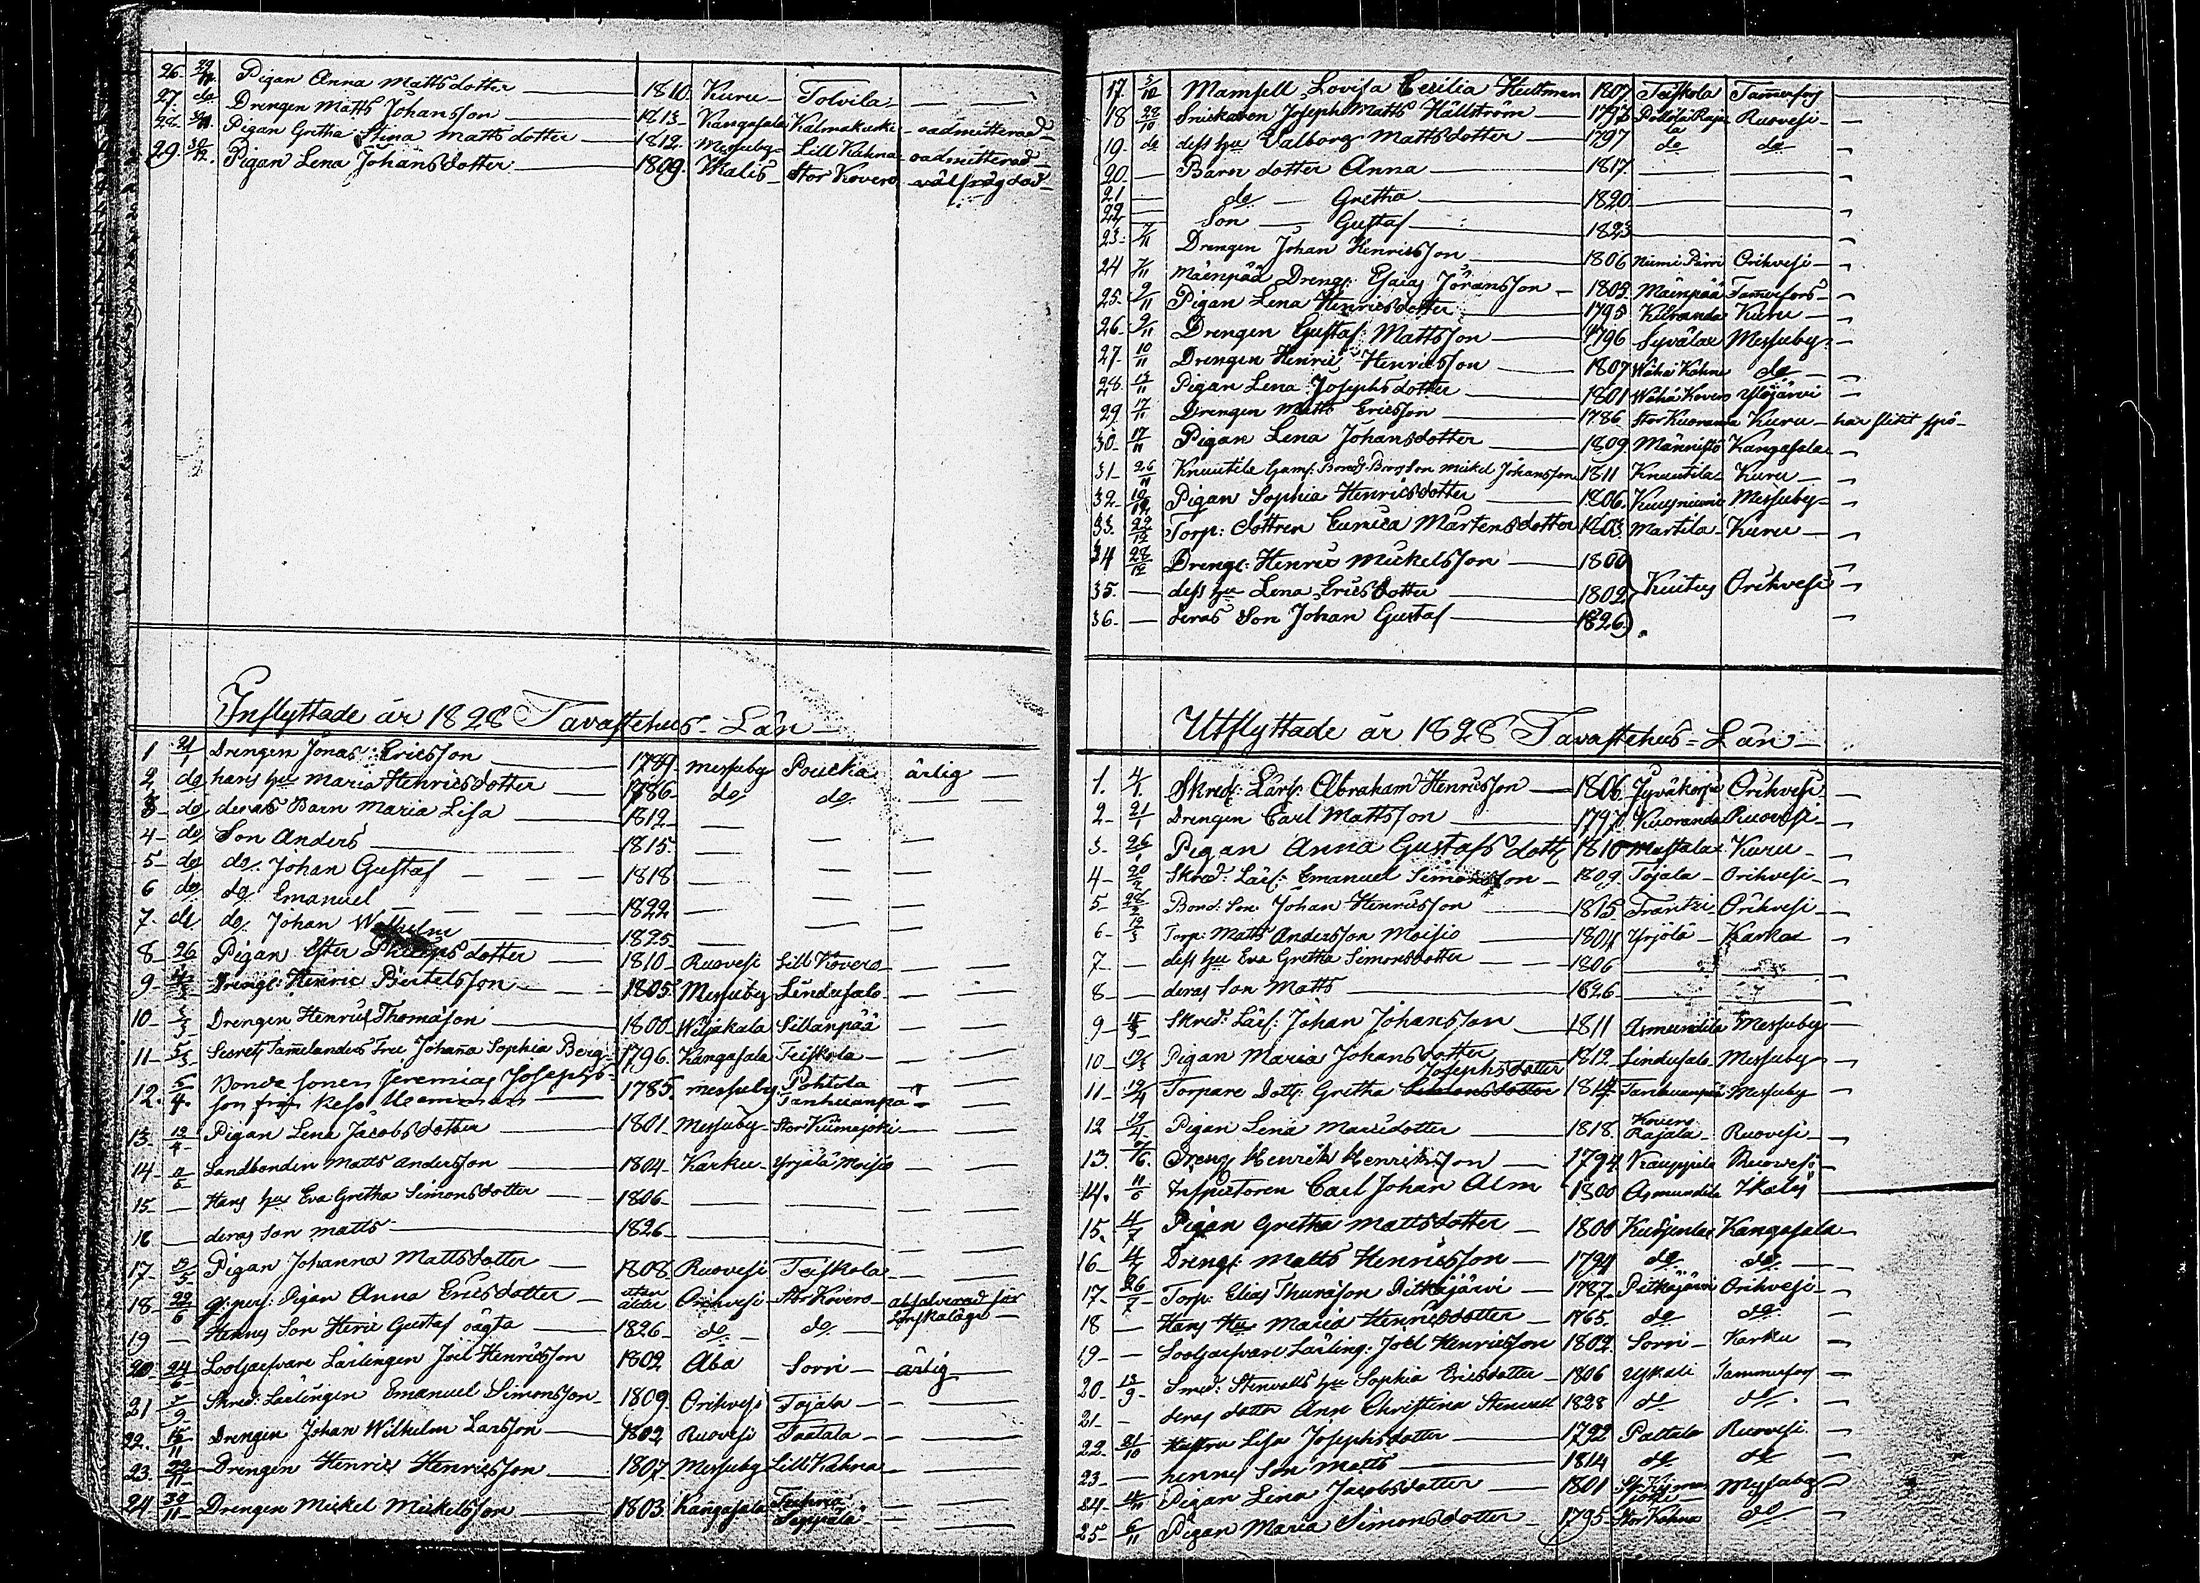 26. 29/11 Pigan Anna Mattsdotter 1810. Kuru Tolvila
27. do Drengen Matts Johansson 1813. Kangasala Kalmakurki oadmitterad
28. Pigan Gretha Stina Mattsdotter 1812. Messuby Lill Kahna oadmitterad
29. 30/12. Pigan Lena Johansdotter 1809. Ikalis Stor Kovero välfrägdad
Inflyttade år 1828 Tavastehus-Län
1 21/1 Drengen Jonas Ericsson 1789. Messuby Poucka ärlig
2 do hans hu Maria Henricsdotter 1786 do do
3 do deras Barn Maria Lisa 1812
4 do Son Anders 1815
5 do do Johan Gustaf 1818
6 do do Emanuel 1822
7 do do Johan Wilhelm 1825
8 26 Pigan Ester Philipsdotter 1810 Ruovesi Lill Kovero
9 Drengen Henric Bertelsson 1805 Messuby Lindusalo
10 Drengen Henric Thomasson 1800 Wiljakala Sillanpää
11 5/3 Secret Tamelanders Fru Johana Sophia Berg 1796. Kangasala Teiskola
12. 5/4. Bonde sonen Jeremias Josephs-
son från Keso 1785. Messuby Pohtola
Tanhuanpä
13. 19/4 Pigan Lena Jacobsdotter 1801 Messuby Stor Kiimajoki
14 Landbonden Matts Andersson 1804 Karku Yrjälä Moisio
15 Hans hu Eva Gretha Simonsdotter 1806
16 deras son Matts 1826
17 19/5 Pigan Johanna Mattsdotter 1808 Ruovesi Teiskola
18 22/6 Pigan Anna Ericsdotter utan
ålder Orihvesi Stor Kovero absolverad för
19 Hennes Son Henric Gustaf oägta 1826 do do
20 24/6 Lootgarfvare Lärlingen Joel Henricsson 1802 Åbo Sorri ärlig
21 7/9 Skred. Lärlingen Emanuel Simonsson 1809 Orihvesi Tojala
22. 15/11 Drengen Johan Wilhelm Larsson 1802 Ruovesi Taatala
23. 29/11 Drengen Henric Henricsson 1807 Messuby Lill Kahna
24 30/11 Drengen Mickel Mickelsson 1803. Kangasala
17 3/10 Mamsell Lovisa Cecilia Hultman 1807 Teiskola Tammerfors
18 28/10 Snickaren Joseph Matts Hällström 1797 Ruovesi
19 do dess hu Valborg Mattsdotter 1797 do do
20 Barn dotter Anna 1817.
21 do Gretha 1820
22 Son Gustaf 1823
23 7/11 Drengen Johan Henricsson 1806 Niemi Pirri Orihvesi
24 7/11 Mäenpää Dreng. Esaias Jöransson 1805 Mäenpää Tammerfors
25. 9/11 Pigan Lena Henricsdotter 1795 Kuoranda Kuru
26 9/11 Drengen Gustaf Mattsson 1796 Syvälax Messuby
27 10/11 Drengen Henric Henricsson 1807 Wähä Kahna do
28. 13/11 Pigan Lena Josephsdotter 1801 Wähä Kovero Ylöjärvi
29 17/11 Drengen Matts Ericsson 1786 Stor Kuoranda Kuru
30. 17/11 Pigan Lena Johansdotter 1809 Männistö Kangasala
31 26/11 Knuutila Gam. Bond. Bror Son Mickel Johansson 1811 Knuutila Kuru
32 10/12 Pigan Sophia Henricsdotter 1806. Kuusniemi Messuby
33 22/12 Torp: Dottren Eurica Mårtensdotter 1803 Martila Kuru
34 28/12 Drengen Henric Mickelsson 1800
35. dess hu Lena Ericsdotter 1802 Kuitus Orihvesi
36 deras Son Johan Gustaf 1826
Utflyttade år 1828 Tavastehus-Län
1. 4/1. Skred. Lärl. Abraham Henricsson 1806 Jyväkorpi Orihvesi
2 21/1 Drengen Carl Mattsson 1797 Kuoranda Ruovesi
3 26/1 Pigan Anna Gustafsdott 1810 Mustala Kuru
4 20/2 Skred. Lärl: Emanuel Simonsson 1809 Tojala Orihvesi
5 Bond. Son Johan Henricsson 1815 Frantzi Orihvesi
6 19/3 Torp: Matts Andersson Moisio 1804 Yrjölä Karku
7 dess hu Eva Gretha Simonsdotter 1806
8 deras Son Matts 1826
9 Skred. Lärl: Johan Johansson 1811 Asmundila Messuby
10 19/3 Pigan Maria Johansdotter 1812 Lindusalo Messuby
11 19/4 Torpare Dott. Gretha Simonsdotter Josephsdotter 1814 Tanhuanpä Messuby
12 19/4 Pigan Lena Mariedotter 1818. Kovero
Rajala Ruovesi
13. Dreng Henrik Henriksson 1794 Kauppila Ruovesi
14. 11/6 Inspectoren Carl Johan Alm 1800 Asmundila Ikalis
15 4/7 Pigan Gretha Mattsdotter 1800 Kangasala
16 4/7 Drengen Matts Henricsson 1794 do do
17 26/7 Torp. Elias Thurasson Pitkäjärvi 1787 Pitkäjärvi Orihvesi
18 Hans Hu Maria Henricsdotter 1765. do do
19 Lootgarfvare Lärling. Joel Henricsson 1802 Sorri Karku
20 13/9 Smed. Stenvalls hu Sophia Ericsdotter 1806 Tammerfors
21 deras dotter Ann Christina Stenvall 1828 do do
22 21/10 Hustru Lisa Josephsdotter 1792 Paltala Ruovesi
23 hennes Son Matts 1814 do do
24 Pigan Lena Jacobsdotter 1801 Messuby
25 6/11 Pigan Maria Simonsdotter 1795 Stor Kahna do